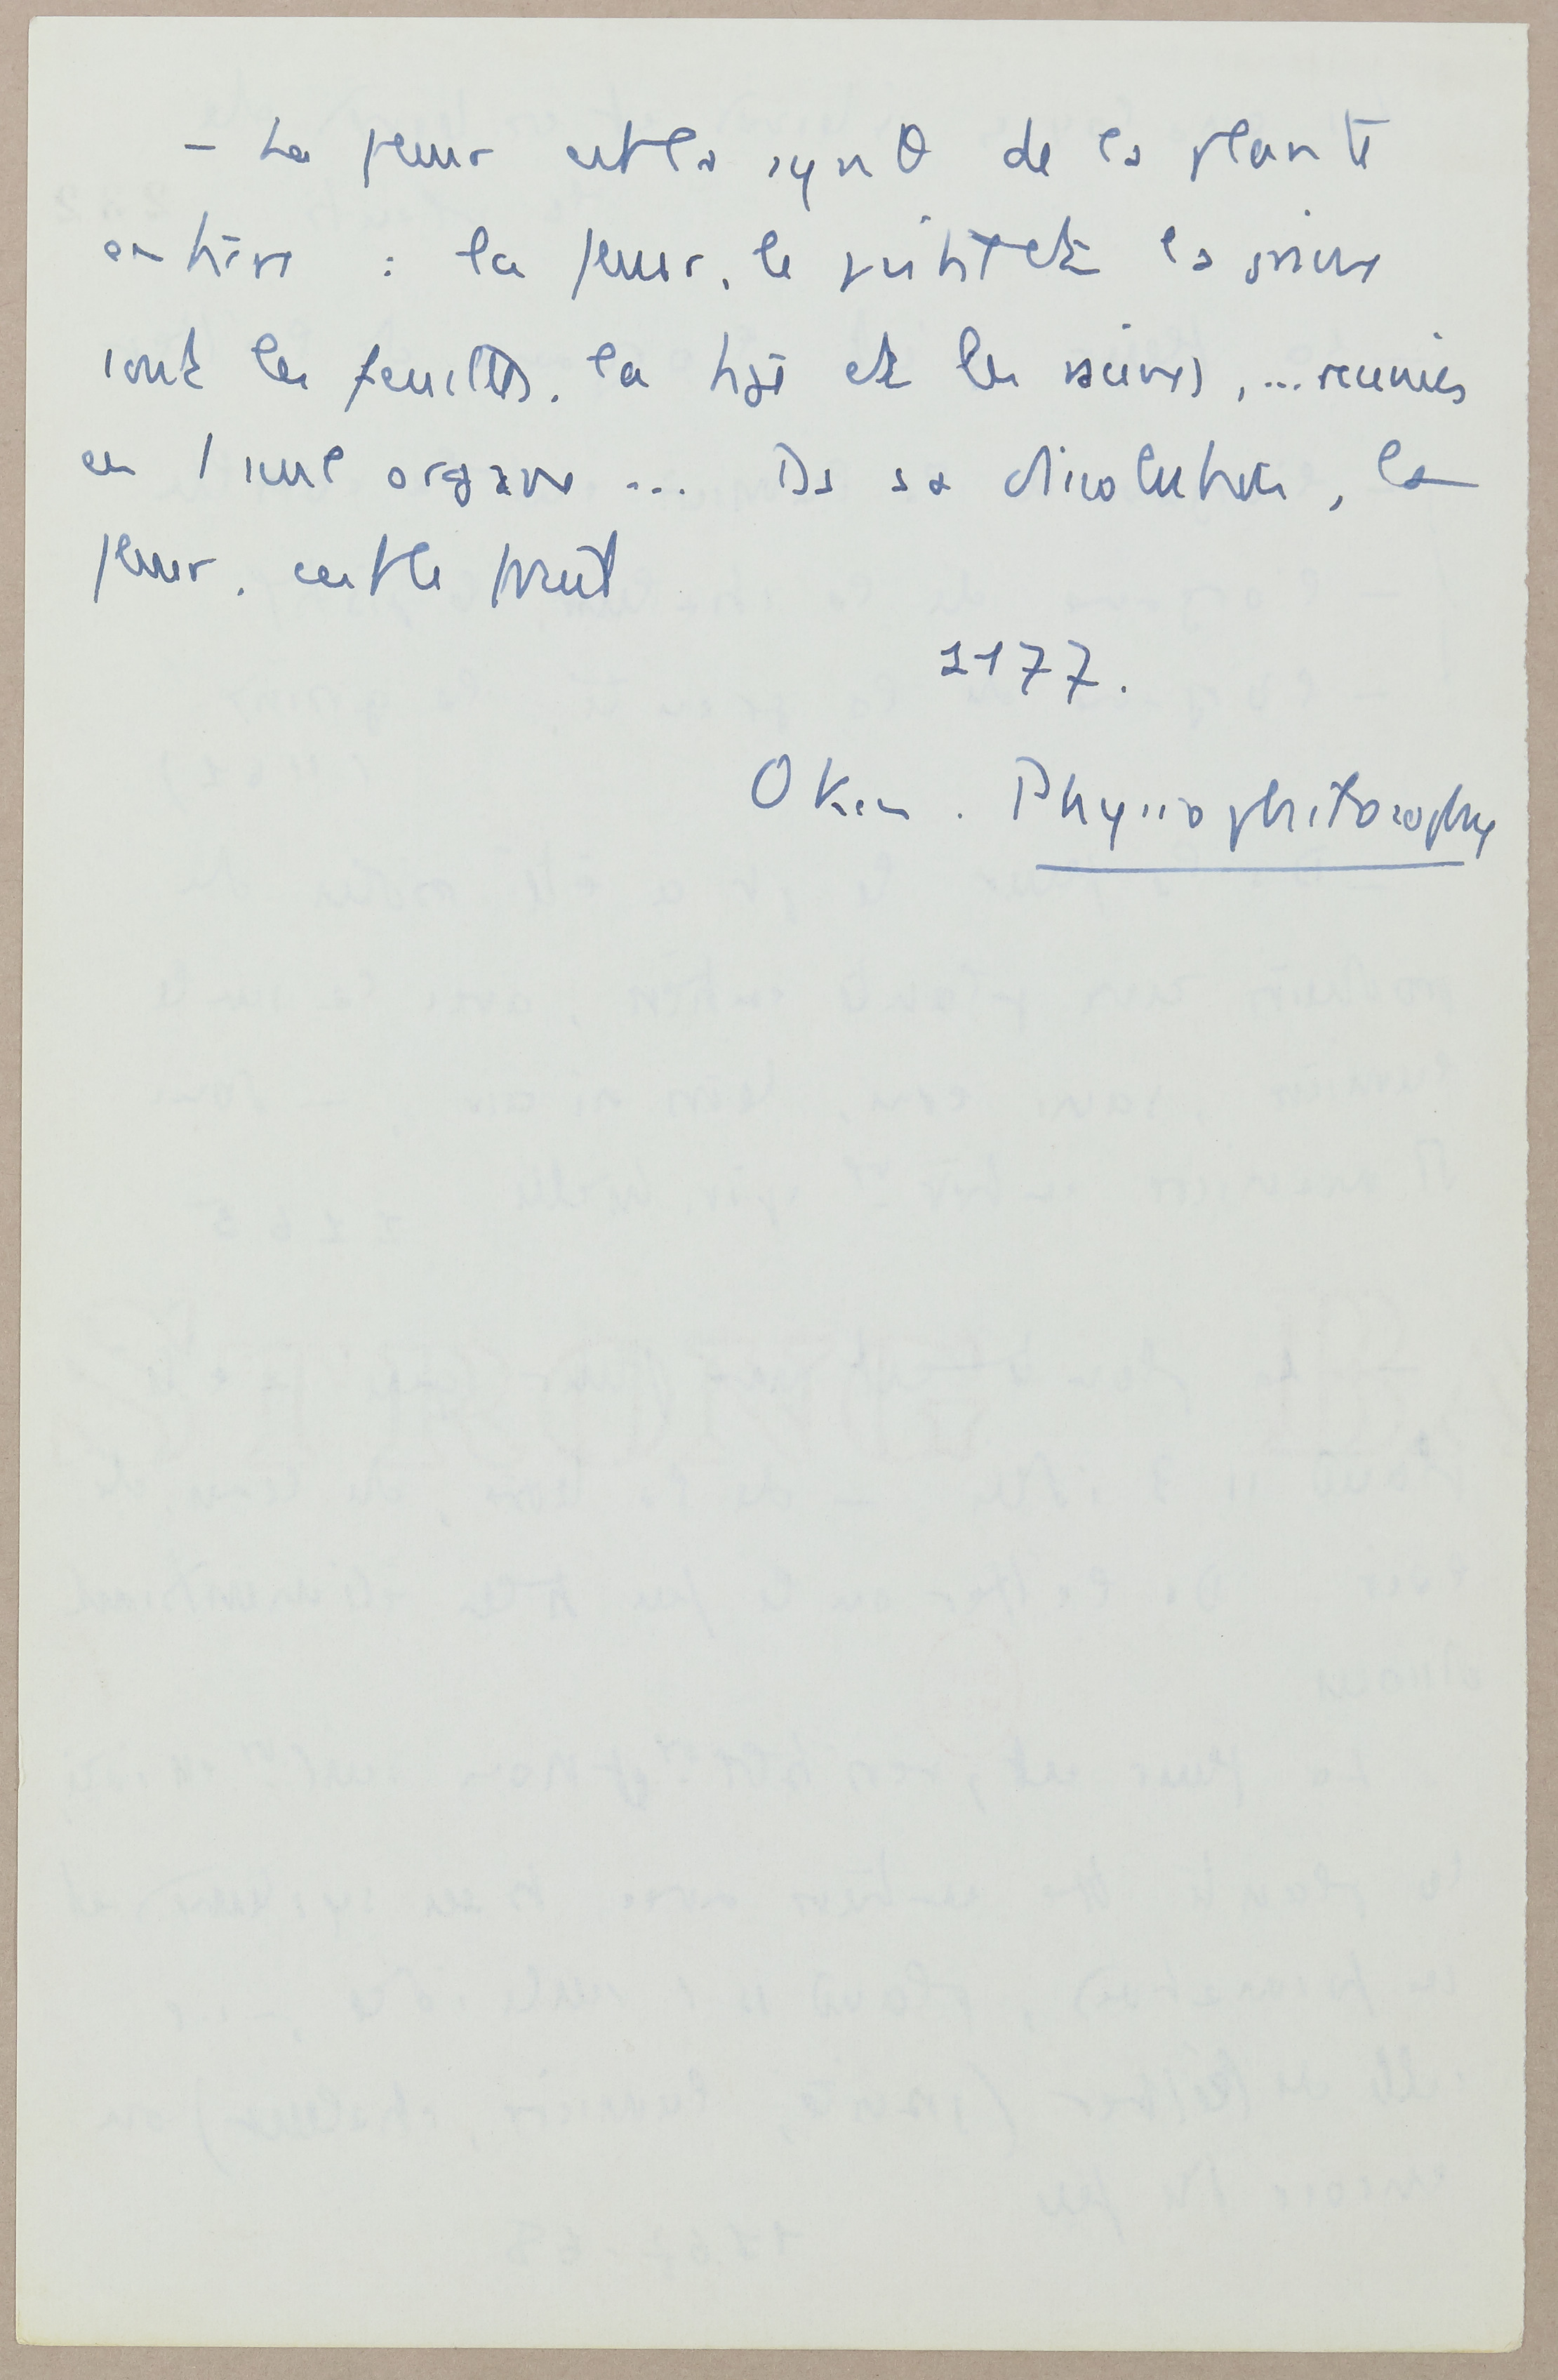 - La fleur est la synθ de la plante
entière : la fleur, le pistil et la graine
sont les feuilles, la tige et les racines, ... réunies
en 1 seul organe ... Ds sa dissolution, la
fleur, est le fruit
1177.
Oken. Physiophilosophy